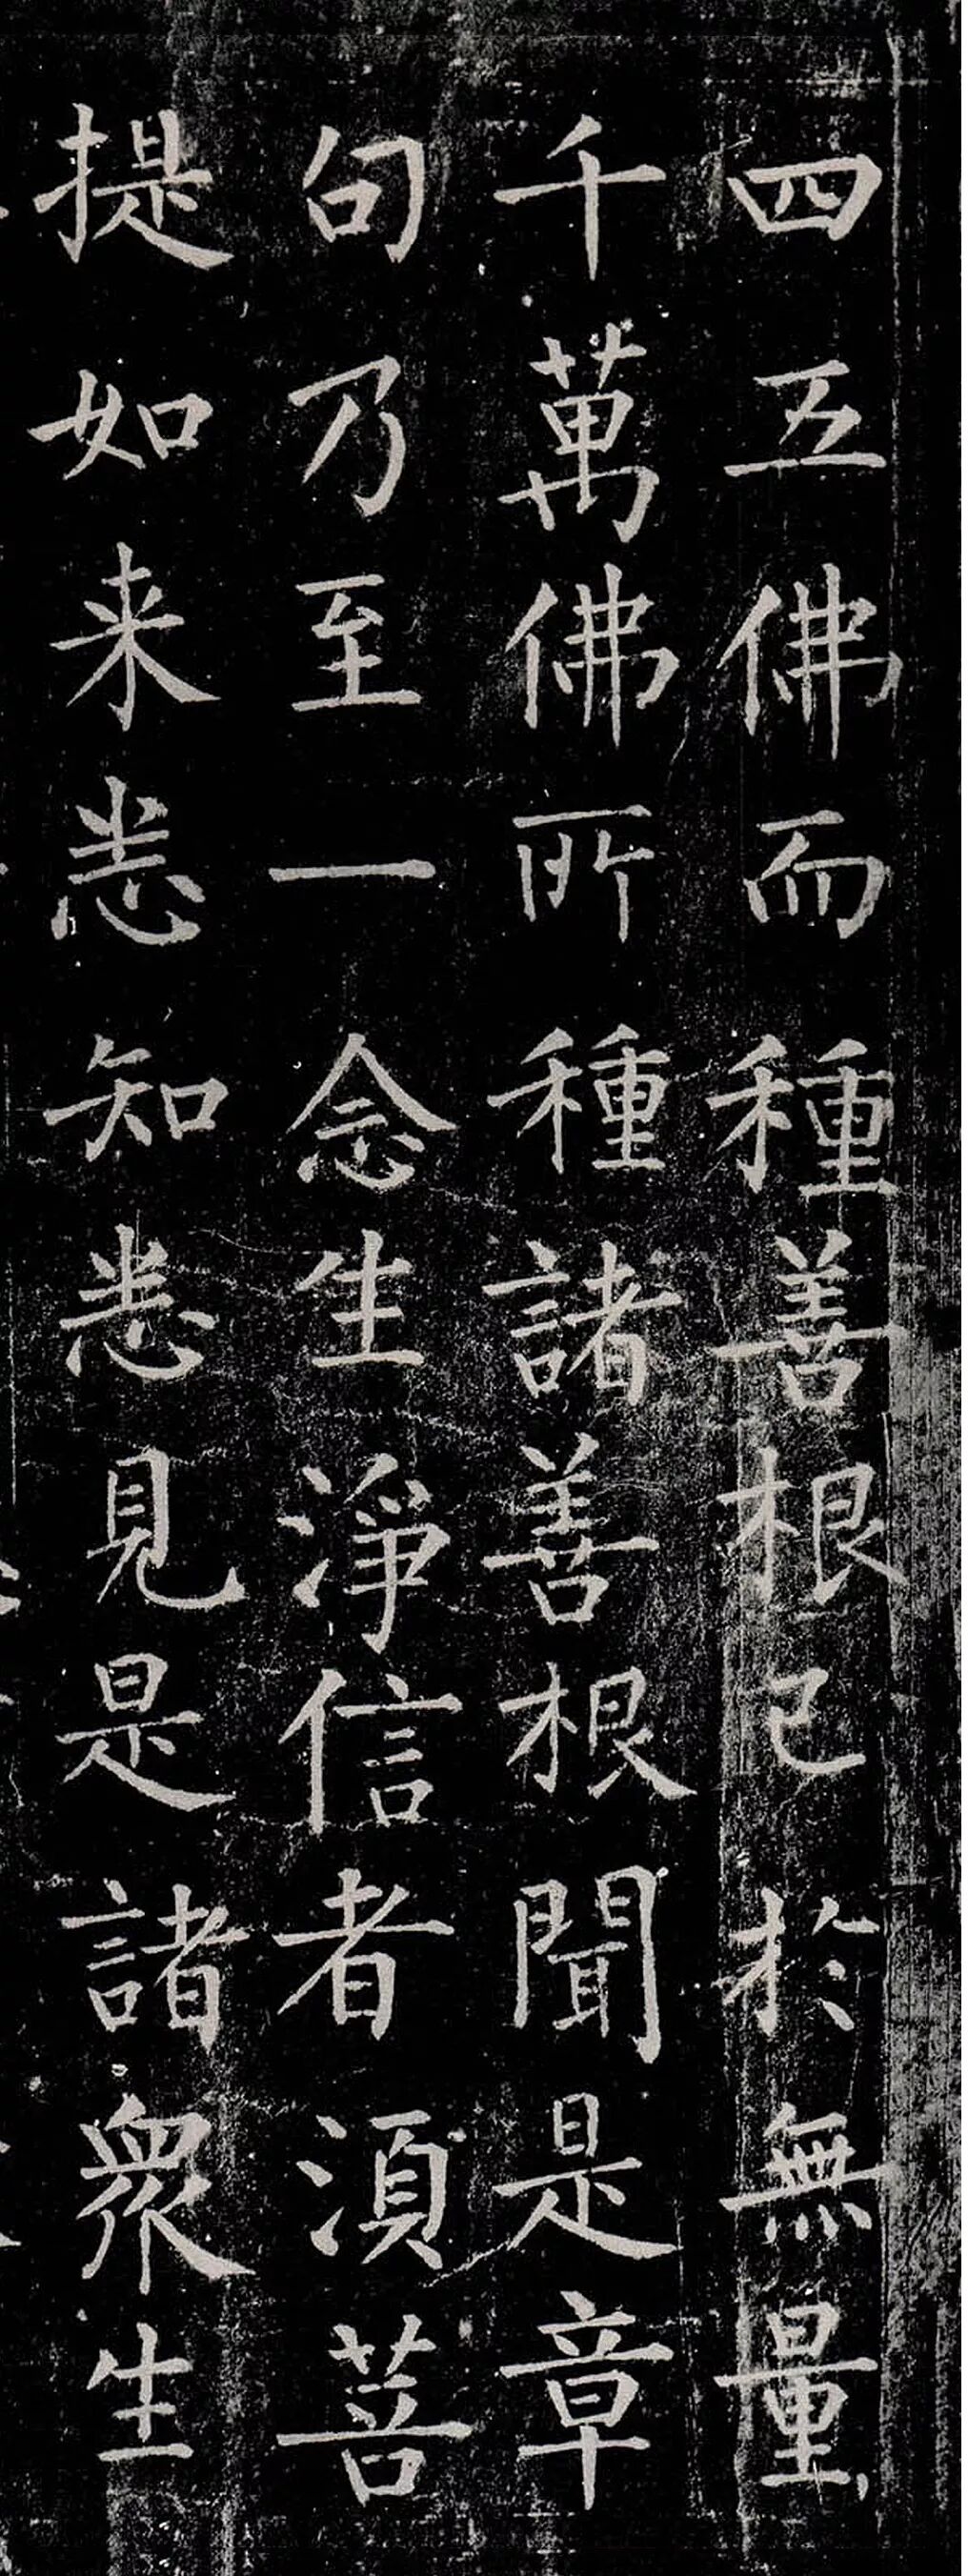 四五佛而種善根已於無量
千萬佛所種諸善根聞是章
句乃至一念生淨信者湏菩
提如来悉知悉見是諸衆生